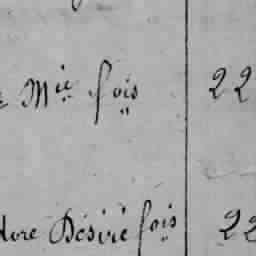 Mie fois 22
dore Désiré fois 22